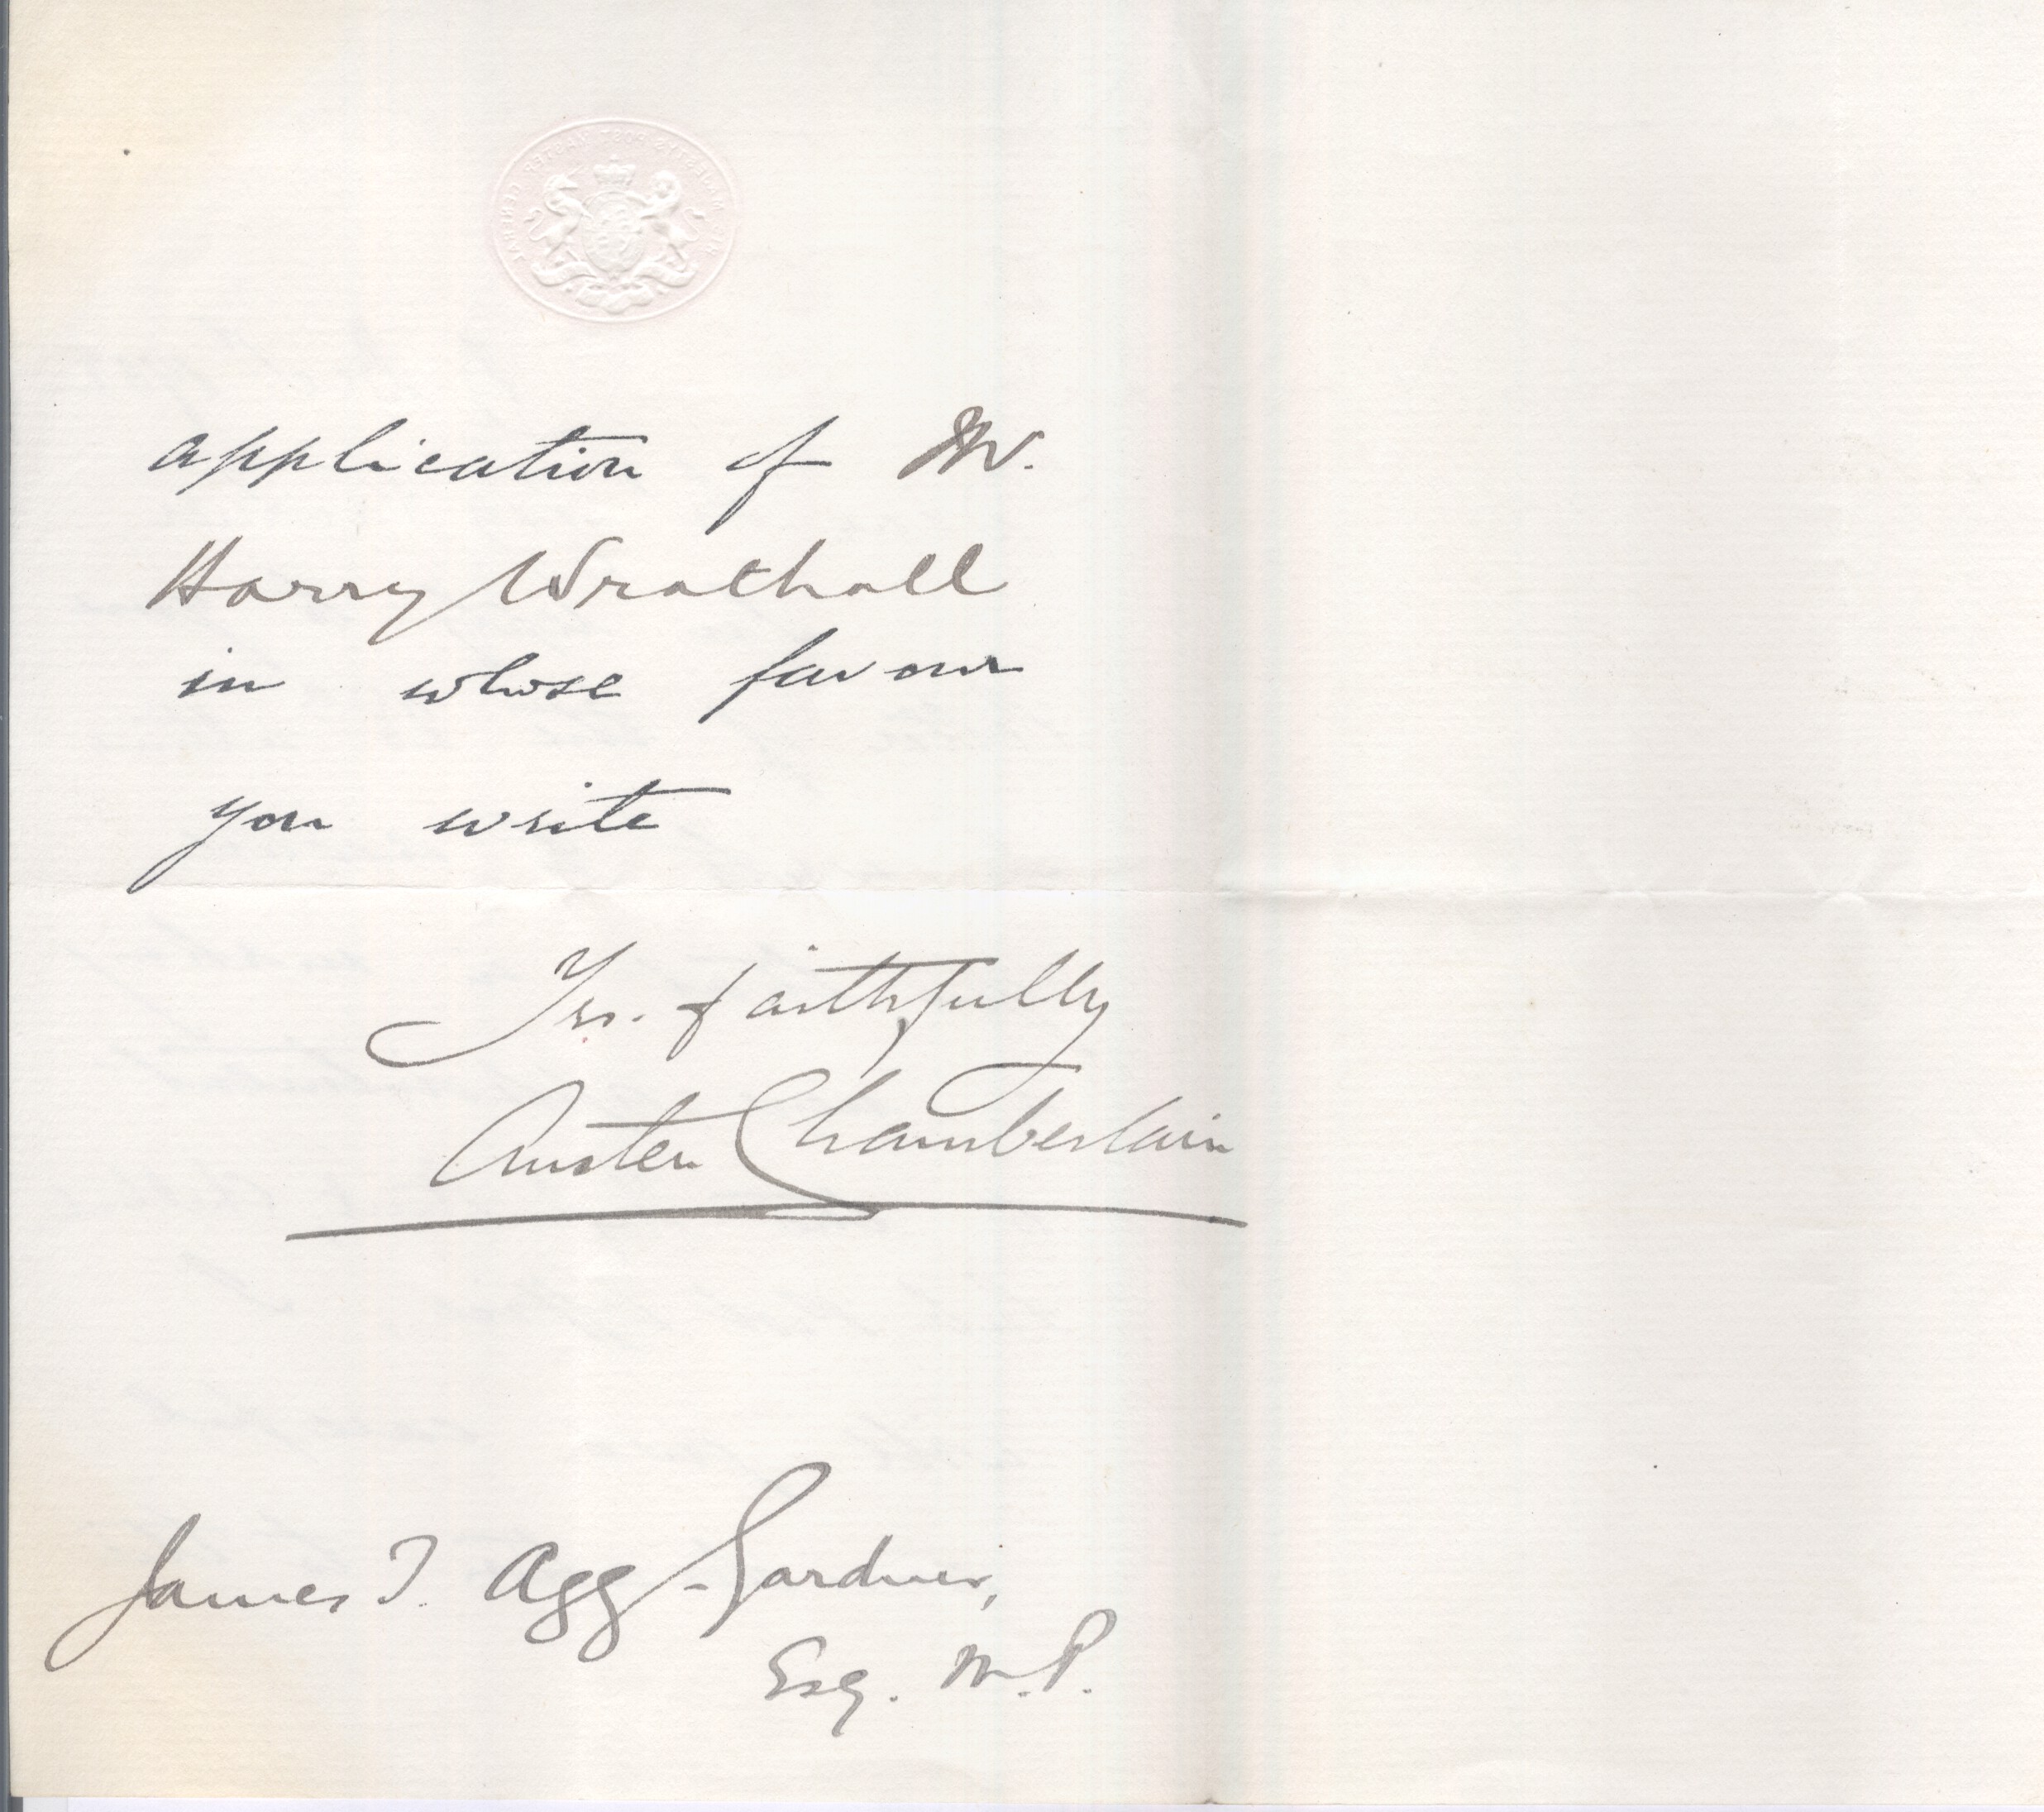 HIS MAJESTY'S POST MASTER GENERAL
application of Mr.
Harry Wrathall
in whose favour
you write
Yrs. faithfully
Austen Chamberlain
James T. Agg-Gardner,
Esq. M.P.